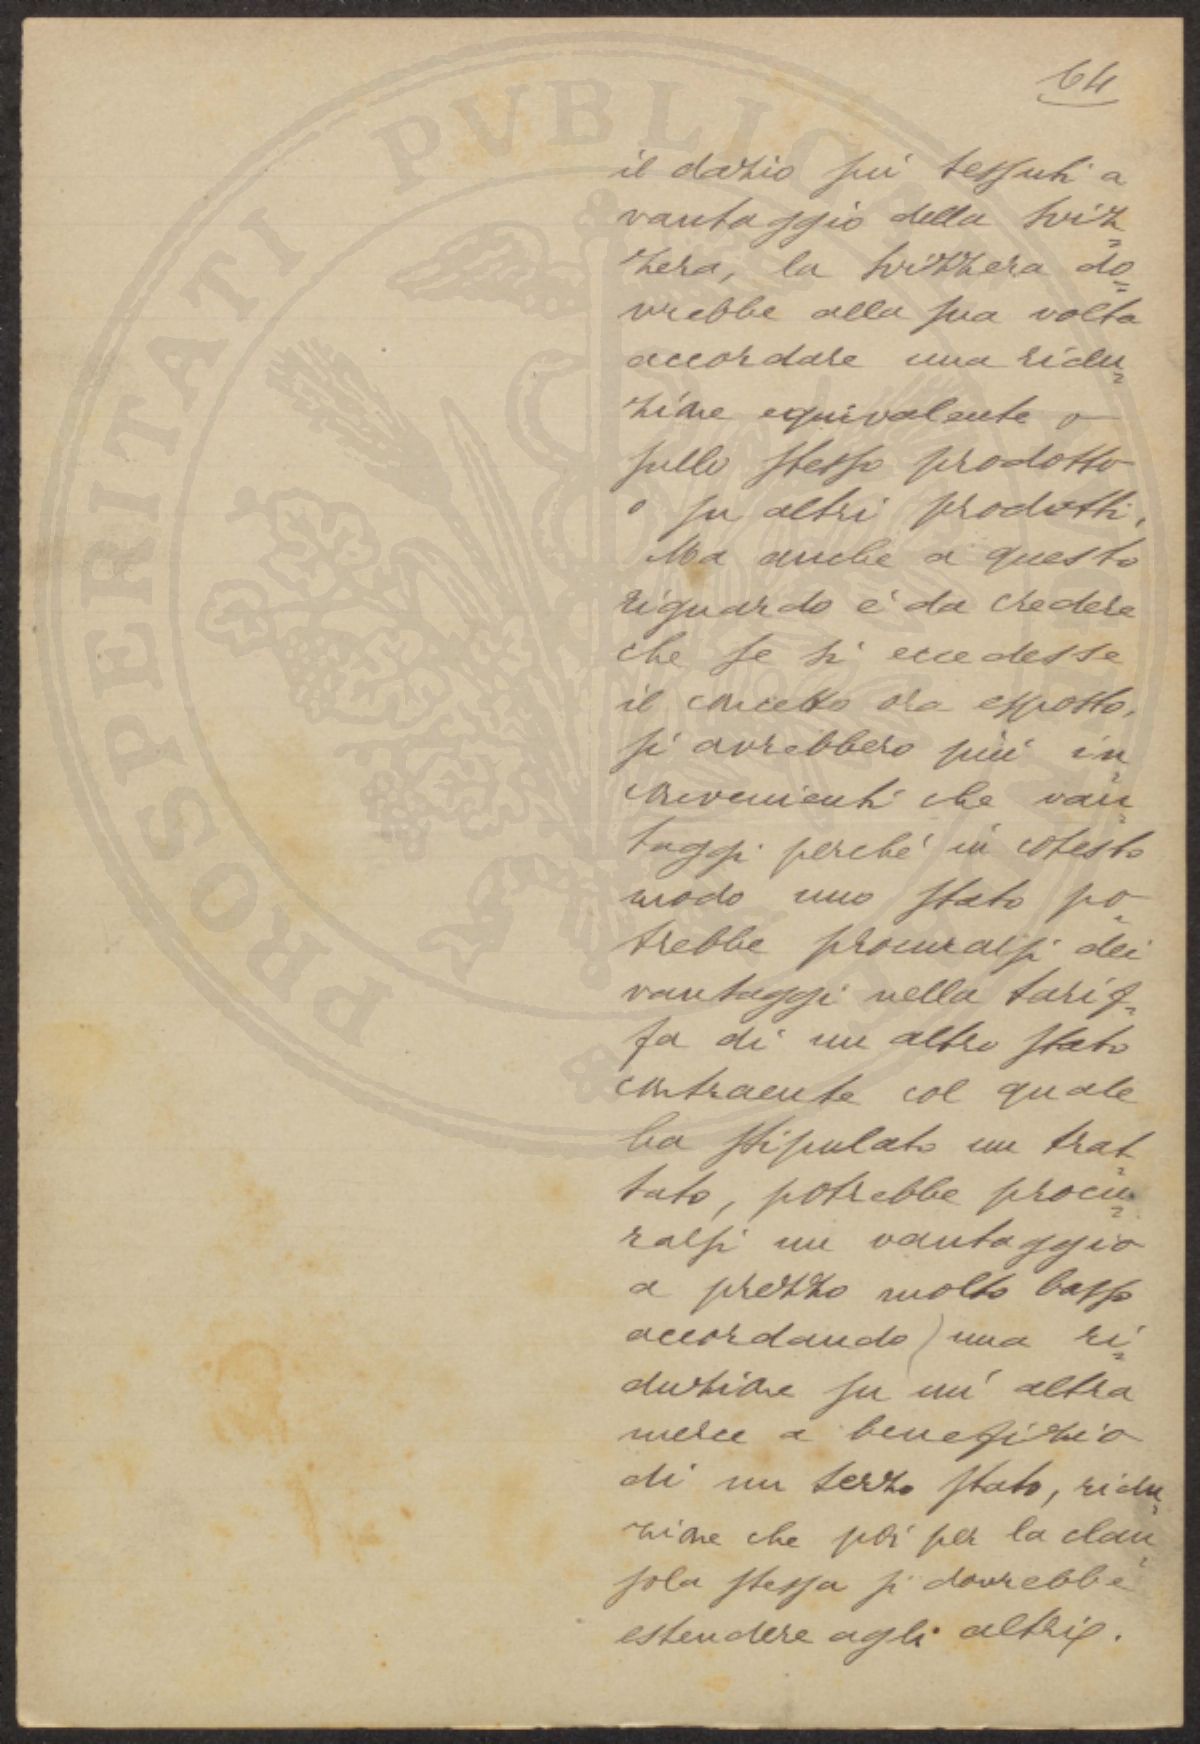 64
il dazio sui tessuti a
vantaggio della Sviz=
zera, la Svizzera do=
vrebbe alla sua volta
accordare una ridu=
zione equivalente o
sullo stesso prodotto
o su altri prodotti.
Ma anche a questo
riguardo è da credere
che se si eccedesse
il concetto ora esposto,
si avrebbero più in=
convenienti che van=
taggi perché in cotesto
modo uno stato po=
trebbe procurarsi dei
vantaggi nella tarif=
fa di un altro stato
contraente col quale
ha stipulato un trat=
tato, potrebbe procu=
rarsi un vantaggio
a prezzo molto basso
accordando) una ri=
duzione su un' altra
merce a benefizio
di un terzo stato, ridu=
zione che poi per la clau=
sola stessa si dovrebbe
estendere agli altri.
PROSPERITATI PUBLICAE